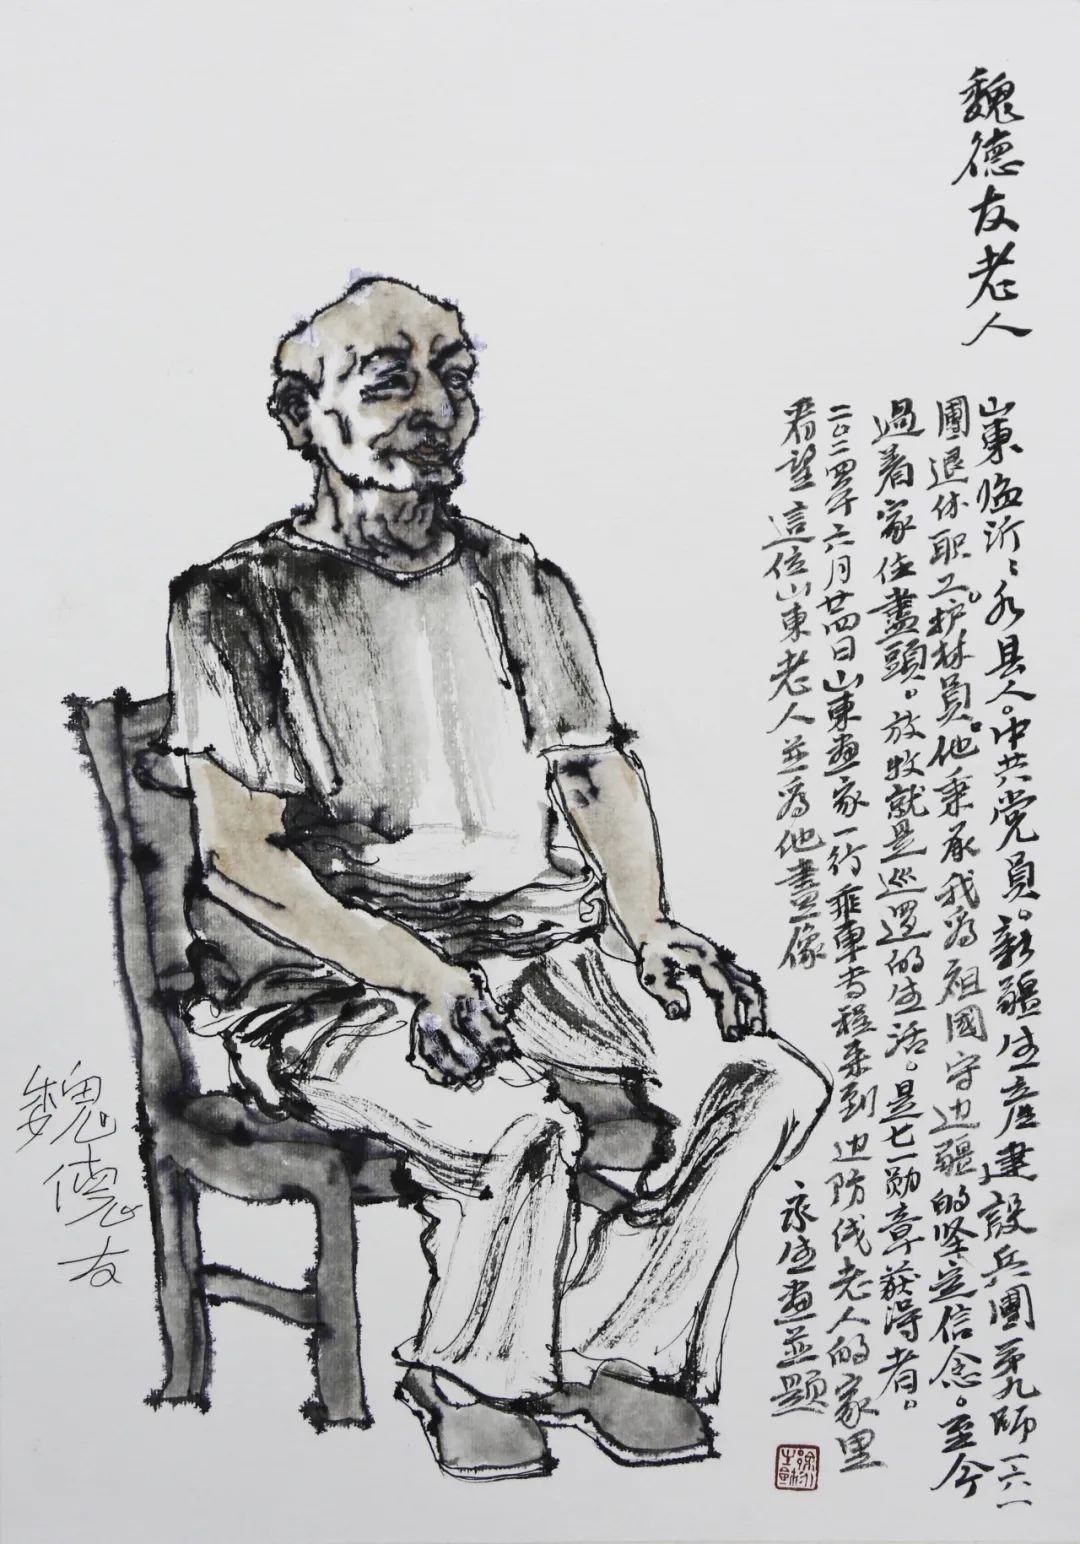 魏德友老人
山東临沂〻水县人。中共党员。新疆生产建設兵團第九師一六一
團退休职工。护林员。他秉承我為祖國守边疆的坚定信念。至今
過着家住盡頭。放牧就是巡逻的生活。是七一勋章获得者。
二〇二四年六月廿四日山東画家一行乘車专程来到边防线老人的家里
看望這位山東老人並為他畫像
永生画並題
魏德友